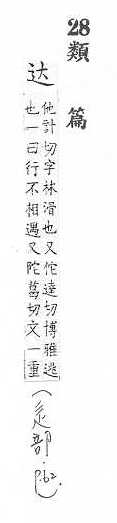 28 類篇
达
他計切字林滑也又佗達切博雅逃
也一曰行不相遇又陀葛切文一重
(辵部 p.62)